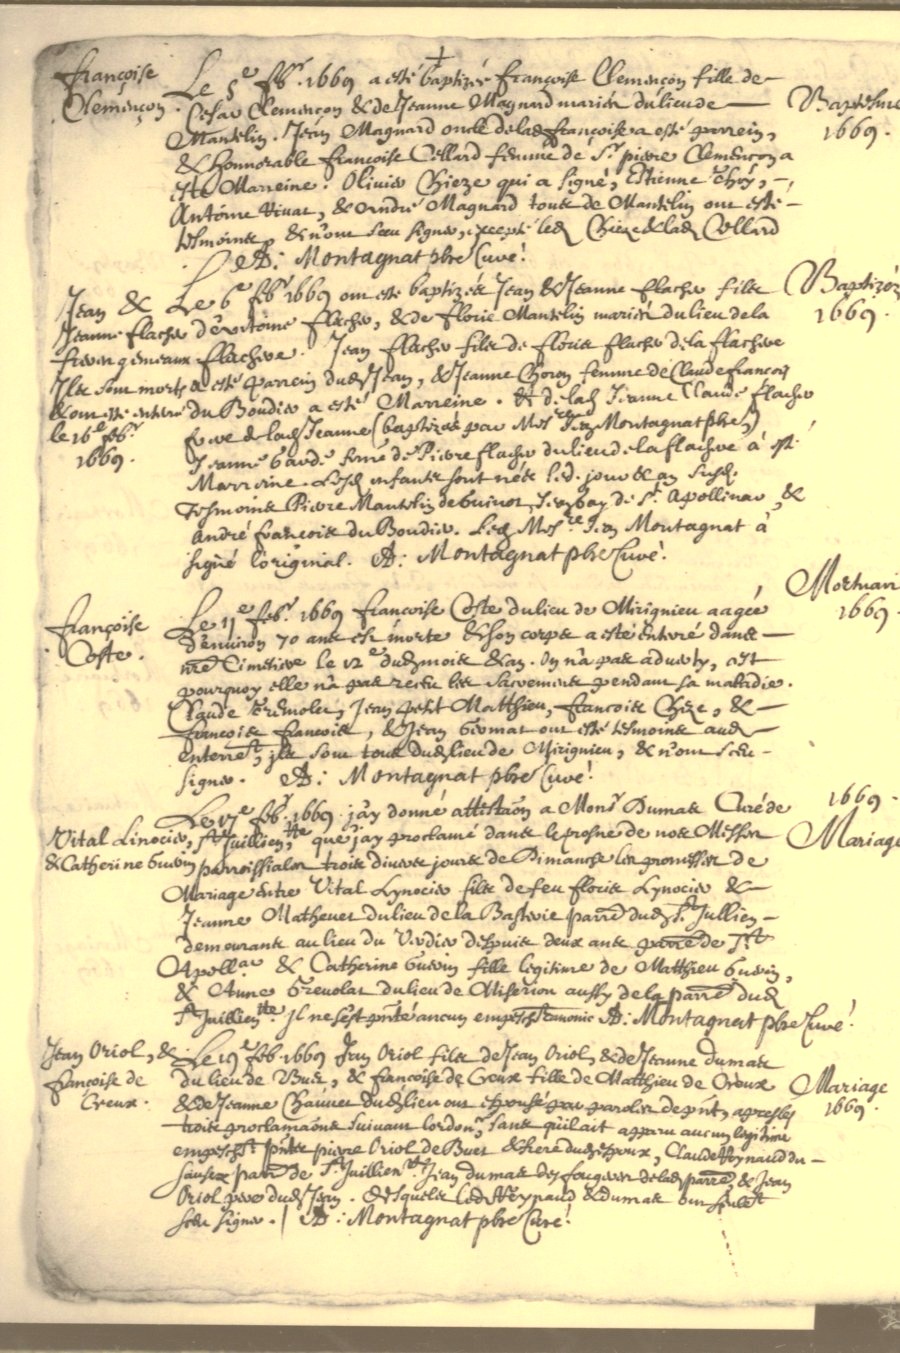 françoise
Clemençon.
Le 5e febr. 1669 a esté baptizée françoise Clemençon fille de
Cesar Clemençon & de Jeanne Magnard mariés du lieu de
Mantelin. Jean Magnard oncle de lad françoise a esté parrein,
& honnorable françoise Collard femme de Sr pierre Clemençon a
esté Marreine. Olivier Chieze qui a signé, Estienne
Antoine Vivat, & André Magnard tous de Mantelin ont esté
tesmoints & n'ont sceu signer, excepté led Chieze & lad Collard
A: Montagnat pbre Curé.
Baptesme
1669.
Jean &
Jeanne flacher
freres gemeaux
Ils sont morts
& ont esté enterré
le 16e febr
1669.
Le 6e febr 1669 ont esté baptizés Jean & Jeanne flacher fils
d'Antoine flacher, & de florie Mantelin mariés du lieu de la
flachere. Jean flacher fils de floris flacher de la flachere
a esté parrein dud Jean, & Jeanne Coron femme de Claude françois
du Boudier a esté Marreine. & de lad Jeanne Claude flacher
frere de lad Jeanne (baptizés par Mesre Jean Montagnat pbre,)
Jeanne femme de Pierre flacher du lieu de la flachere a esté
Marreine. Lesd enfants sont nés led. jour & an susd.
tesmoints Pierre Mantelin de de St. Apollinar, &
André françois du Boudier. Led Mesre Jean Montagnat a
signé l'original. A: Montagnat pbre Curé.
Baptizés
1669.
françoise
Coste.
Le 11e febr. 1669 françoise Coste du lieu de Mirignieu aagée
d'environ 70 ans est morte & son corps a esté enterré dans
nre Cimetiere le 12e dud mois & an. On n'a pas adverty, c'est
pourquoy elle n'a pas receu les sacrements pendant sa maladie.
Claude Jean petit Matthieu, francois Chieze, &
francois francois, & Jean ont esté tesmoints aud
enterremt, ils sont tous dud lieu de Mirignieu, & n'ont sceu
signer. A: Montagnat pbre Curé.
Mortuari
1669.
Vital Linocier,
& Catherine Guerin
Le 17e febr. 1669 j'ay donné attestaon a Monsr Dumas Curé de
St Juillien, que j'ay proclamé dans le prosne de nos Messes
parroissiales trois divers jours de Dimanche les promesses de
Mariage entre Vital Lynocier fils de feu floris Lynocier &
Jeanne Mathevet du lieu de la Bastevie parre dud St Jullien
demourant au lieu du Verdier despuis deux ans parre de St
Apollar & Catherine Guerin fille legitime de Matthieu Guerin,
& Anne Grenolat du lieu de Miserion aussy de la parre dud
St Juillien. Il ne s'est pnté aucun empeschemt canonic A: Montagnat pbre Curé.
1669.
Mariage
Jean Oriol, &
françoise de
Creux.
Le 19e feb. 1669 Jean Oriol fils de Jean Oriol, & de Jeanne Dumas
du lieu de Buis, & françoise de Creux fille de Matthieu de Creux
& de Jeanne Chauvet dud lieu ont espousé par paroles de pnt, apres les
trois proclamaons suivant l'ordonce, sans qu'il ait apparu aucun legitime
empeschemt pnts pierre Oriol de Buis & frere dud espoux, Claude Reynaud du
parre de St. Juillien, Jean dumas des fougeres de lad parre, & Jean
Oriol pere dud Jean. desquels led Reynaud & dumas ont seulemt
sceu signer. A: Montagnat pbre Curé.
Mariage
1669.